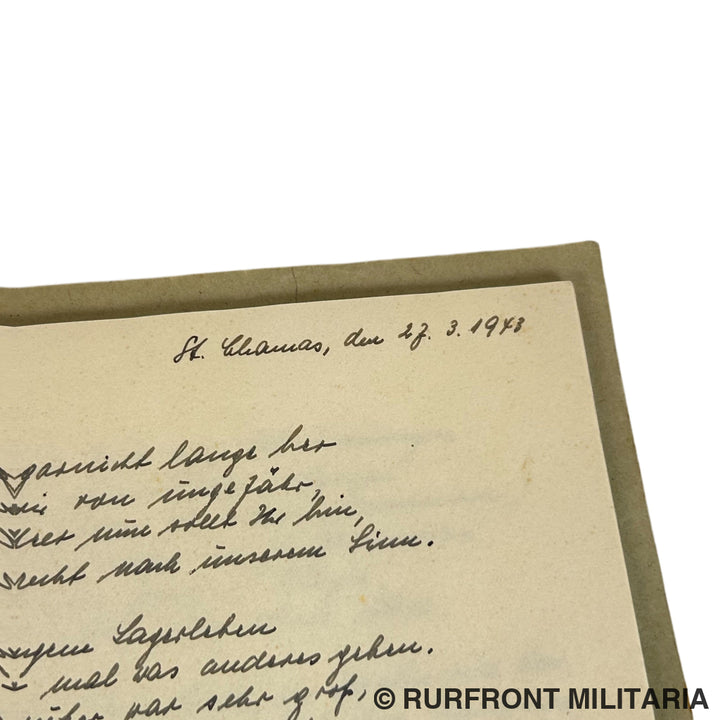 St. Chamas, den 27. 3. 1943
garnicht lange her
von ungefähr,
nun sollt Ihr hin,
recht nach unserem Sinn.
Lagerleben
mal was anderes geben.
war sehr groß,
© RURFRONT MILITARIA